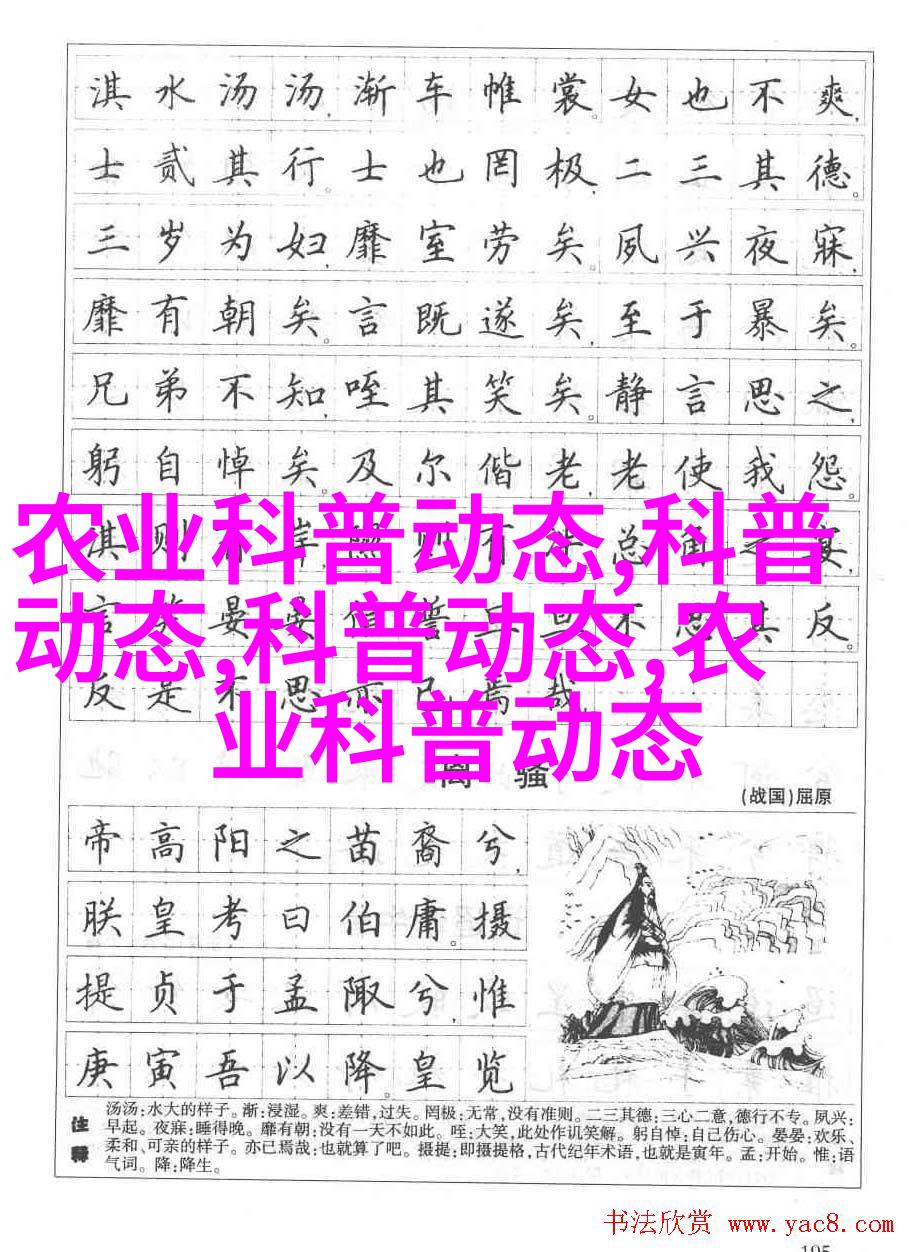 淇水汤汤,渐车帷裳。女也不爽,
士贰其行。士也罔极,二三其德。
三岁为妇,靡室劳矣。夙兴夜寐,
靡有朝矣。言既遂矣,至于暴矣。
兄弟不知,咥其笑矣。静言思之,
躬自悼矣。及尔偕老,老使我怨。
农业科普动态,科普
动态,科普动态,农
业科普动态
淇则有岸,隰则有泮。总角之宴,
言笑晏晏。信誓旦旦,不思其反。
反是不思,亦已焉哉。
离骚
(战国)屈原
帝高阳之苗裔兮,
朕皇考曰伯庸。摄
提贞于孟陬兮,惟
庚寅吾以降。皇览
注释
汤汤:水大的样子。渐:浸湿。爽:差错,过失。罔极:无常,没有准则。二三其德:三心二意,德行不专。夙兴:
早起。夜寐:睡得晚。靡有朝:没有一天不如此。咥:大笑,此处作讥笑解。躬自悼:自己伤心。晏晏:欢乐、
柔和、可亲的样子。亦已焉哉:也就算了吧。摄提:即摄提格,古代纪年术语,也就是寅年。孟:开始。惟:语
气词。降:降生。
书法欣赏 www.yac8.com
105